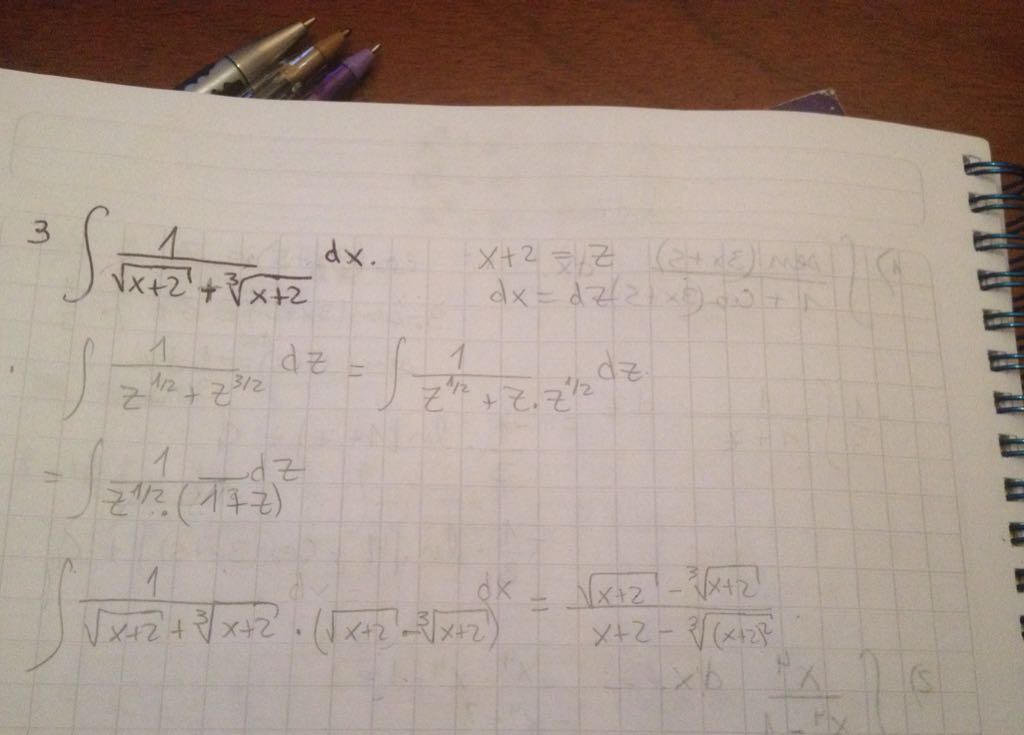 3 ∫ 1/(√(x+2) + ∛(x+2)) dx.
x+2 = z
dx = dz
∫ 1/(z^(1/2) + z^(3/2)) dz = ∫ 1/(z^(1/2) + z·z^(1/2)) dz.
= ∫ 1/(z^(1/2)·(1+z)) dz
∫ 1/(√(x+2) + ∛(x+2)) · (√(x+2) - ∛(x+2)) dx = (√(x+2) - ∛(x+2))/(x+2 - ∛((x+2)²))